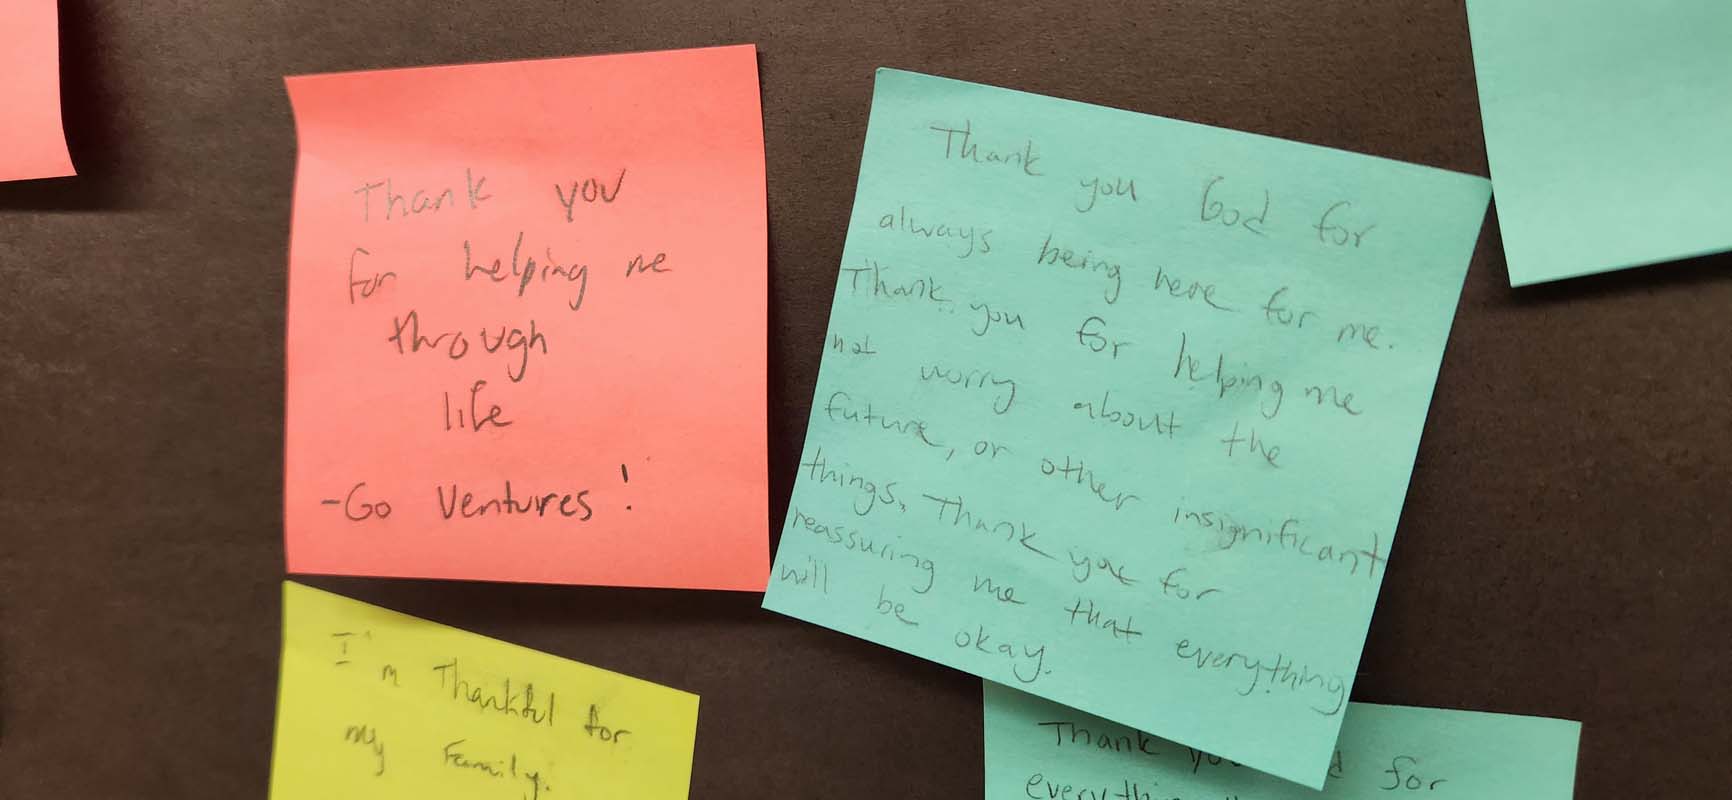 Thank you
for helping me
through
life
-Go Ventures!
Thank you God for
always being here for me.
Thank you for helping me
not worry about the
future, or other insignificant
things. Thank you for
reassuring me that everything
will be okay.
I'm Thankful for
my Family.
Thank for